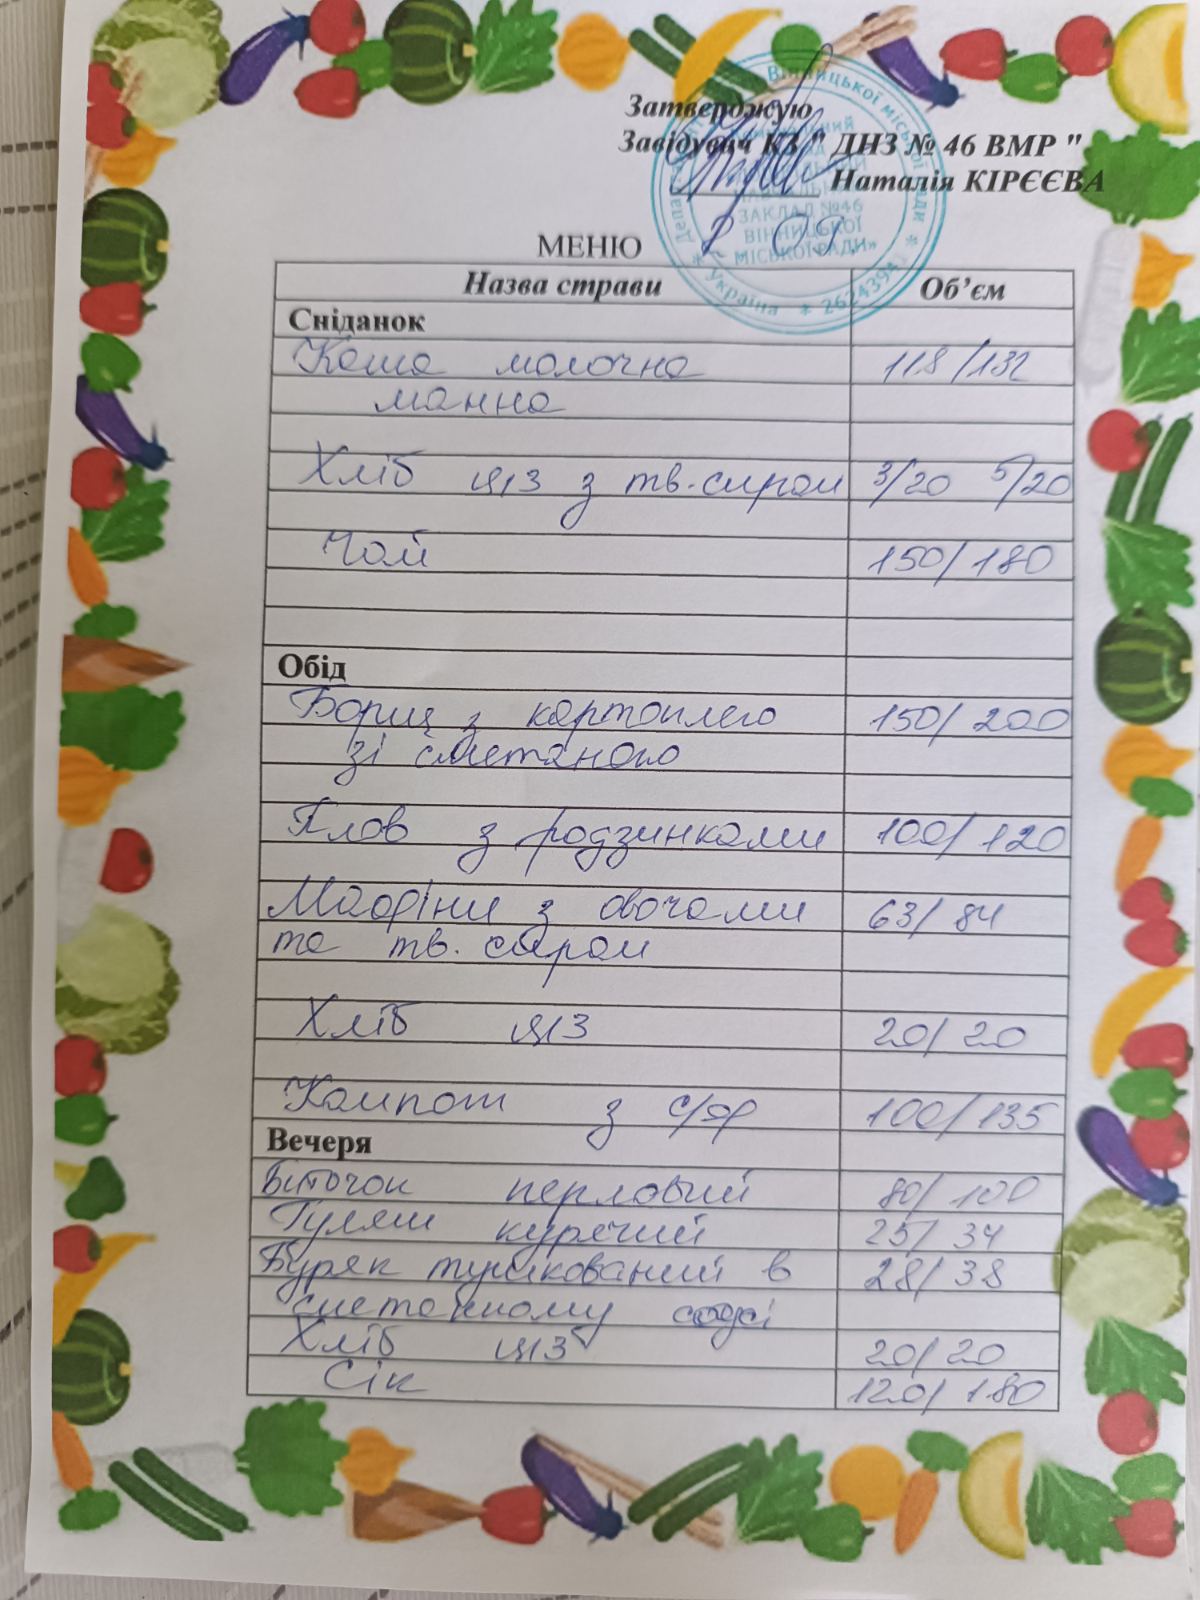 Затверджую
Завідувач КЗ " ДНЗ № 46 ВМР "
Наталія КІРЄЄВА
Вінницької міської ради
ЗАКЛАД №46
ВІННИЦЬКОЇ
МІСЬКОЇ РАДИ»
* Україна *
МЕНЮ
Назва страви Об’єм
Сніданок
Каша молочна 118/132
манна
Хліб ц/з з тв.сиром 3/20 5/20
Чай 150/180
Обід
Борщ з картоплею 150/200
зі сметаною
Плов з родзинками 100/120
Мафіни з овочами 63/84
та тв. сиром
Хліб ц/з 20/20
Компот з с/ф 100/135
Вечеря
Біточок перловий 80/100
Гуляш курячий 25/34
Буряк тушкований в 28/38
сметанному соусі
Хліб ц/з 20/20
Сік 120/180